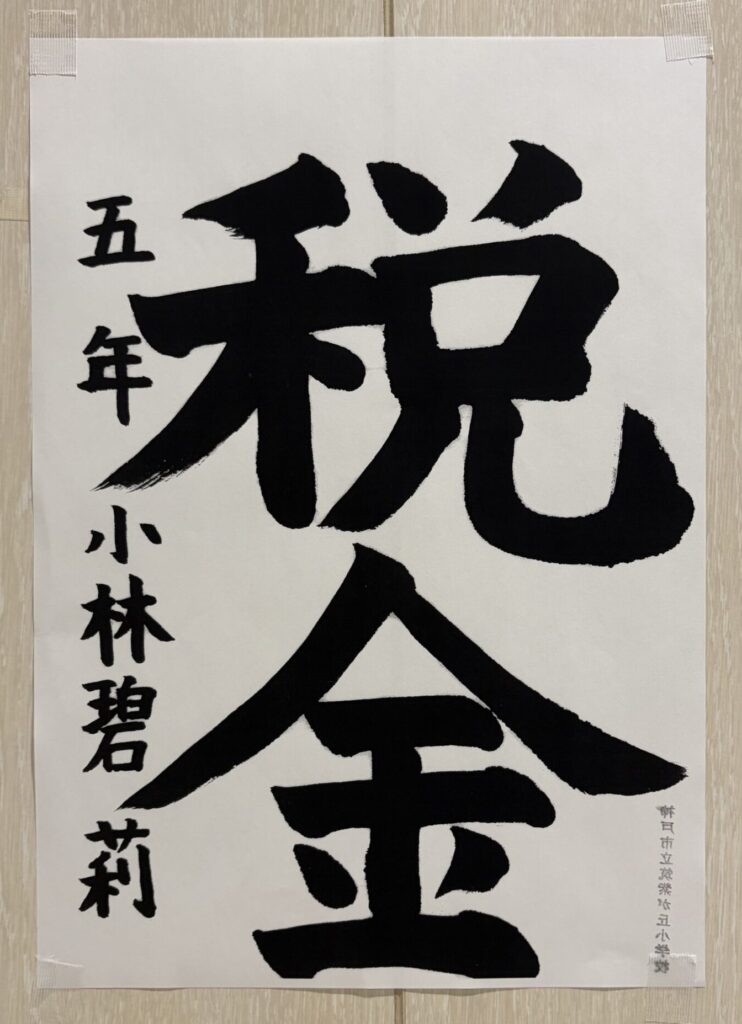 税金
五年 小林碧莉
神戸市立筑紫が丘小学校